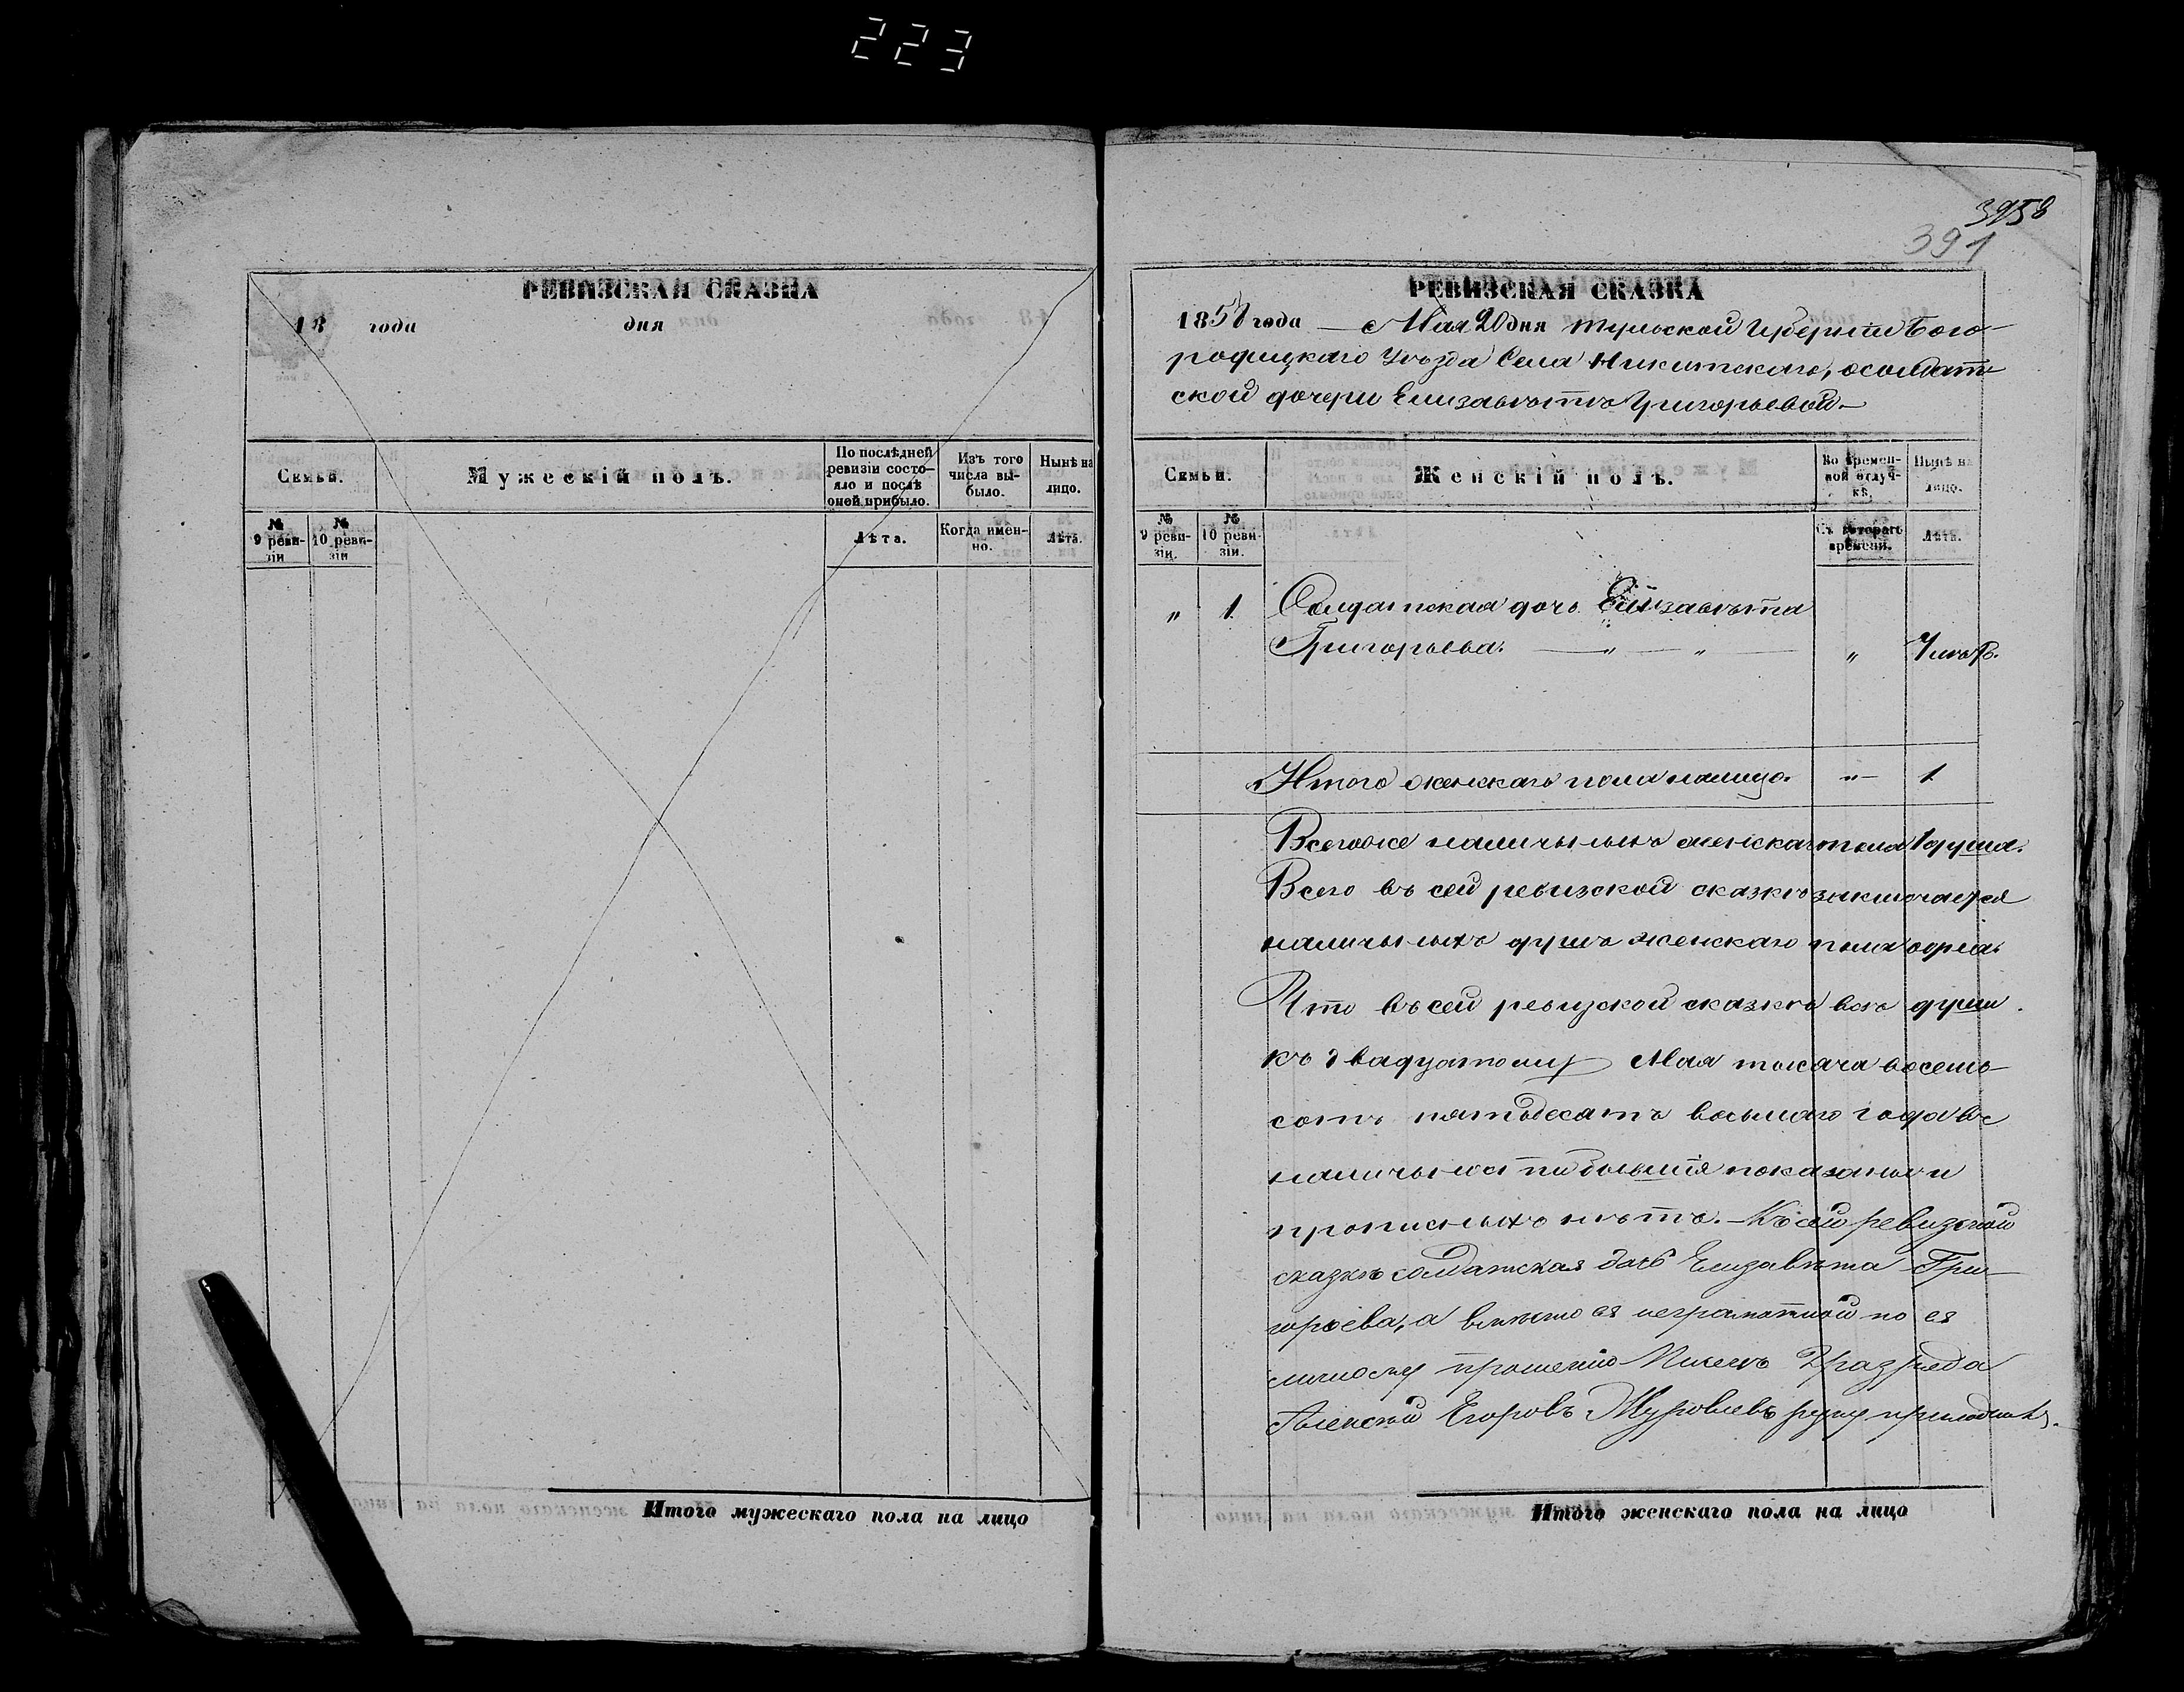 223
РЕВИЗСКАЯ СКАЗКА
18 года дня
Семьи.
Мужескій полъ.
По послѣдней
ревизіи состо-
яло и послѣ
оней прибыло.
Изъ того
числа вы-
было.
Нынѣ на
лицо.
№
9 реви-
зіи
№
10 реви-
зіи
Лѣта.
Когда имен-
но.
Лѣта.
Итого мужескаго пола на лицо
3958
391
РЕВИЗСКАЯ СКАЗКА
1858 года — Мая 20 дня Тульской Губерніи Бого-
родицкаго Уѣзда Села Никитскаго, о солдат-
ской дочери Елизаветѣ Григорьевой.—
Семьи.
Женскій полъ.
Во времен-
ной отлуч-
кѣ.
Нынѣ на
лицо.
№
9 реви-
зіи.
№
10 реви-
зіи.
Съ котораго
времени.
Лѣта.
„ 1 Солдатская дочь Елизавѣта
Григорьева. — „ — „ — „
Итого женскаго пола налицо. „— 1
Всего же наличныхъ женскаго пола 1 душа.
Всего въ сей ревизской сказкѣ заключается
наличныхъ душъ женскаго пола одна.
Что въ сей ревизской сказкѣ всѣ души
къ двадцатому Мая тысяча восемь-
сотъ пятьдесятъ восьмаго года въ
наличности бывшія показаны и
прописныхъ нѣтъ. — Къ сей ревизской
сказкѣ солдатская дочь Елизавѣта Гри-
горьева, а вмѣсто ея неграмотной по ея
личному прошенію Писецъ 2 разряда
Алексѣй Егоровъ Журовлевъ руку приложилъ.
Итого женскаго пола на лицо